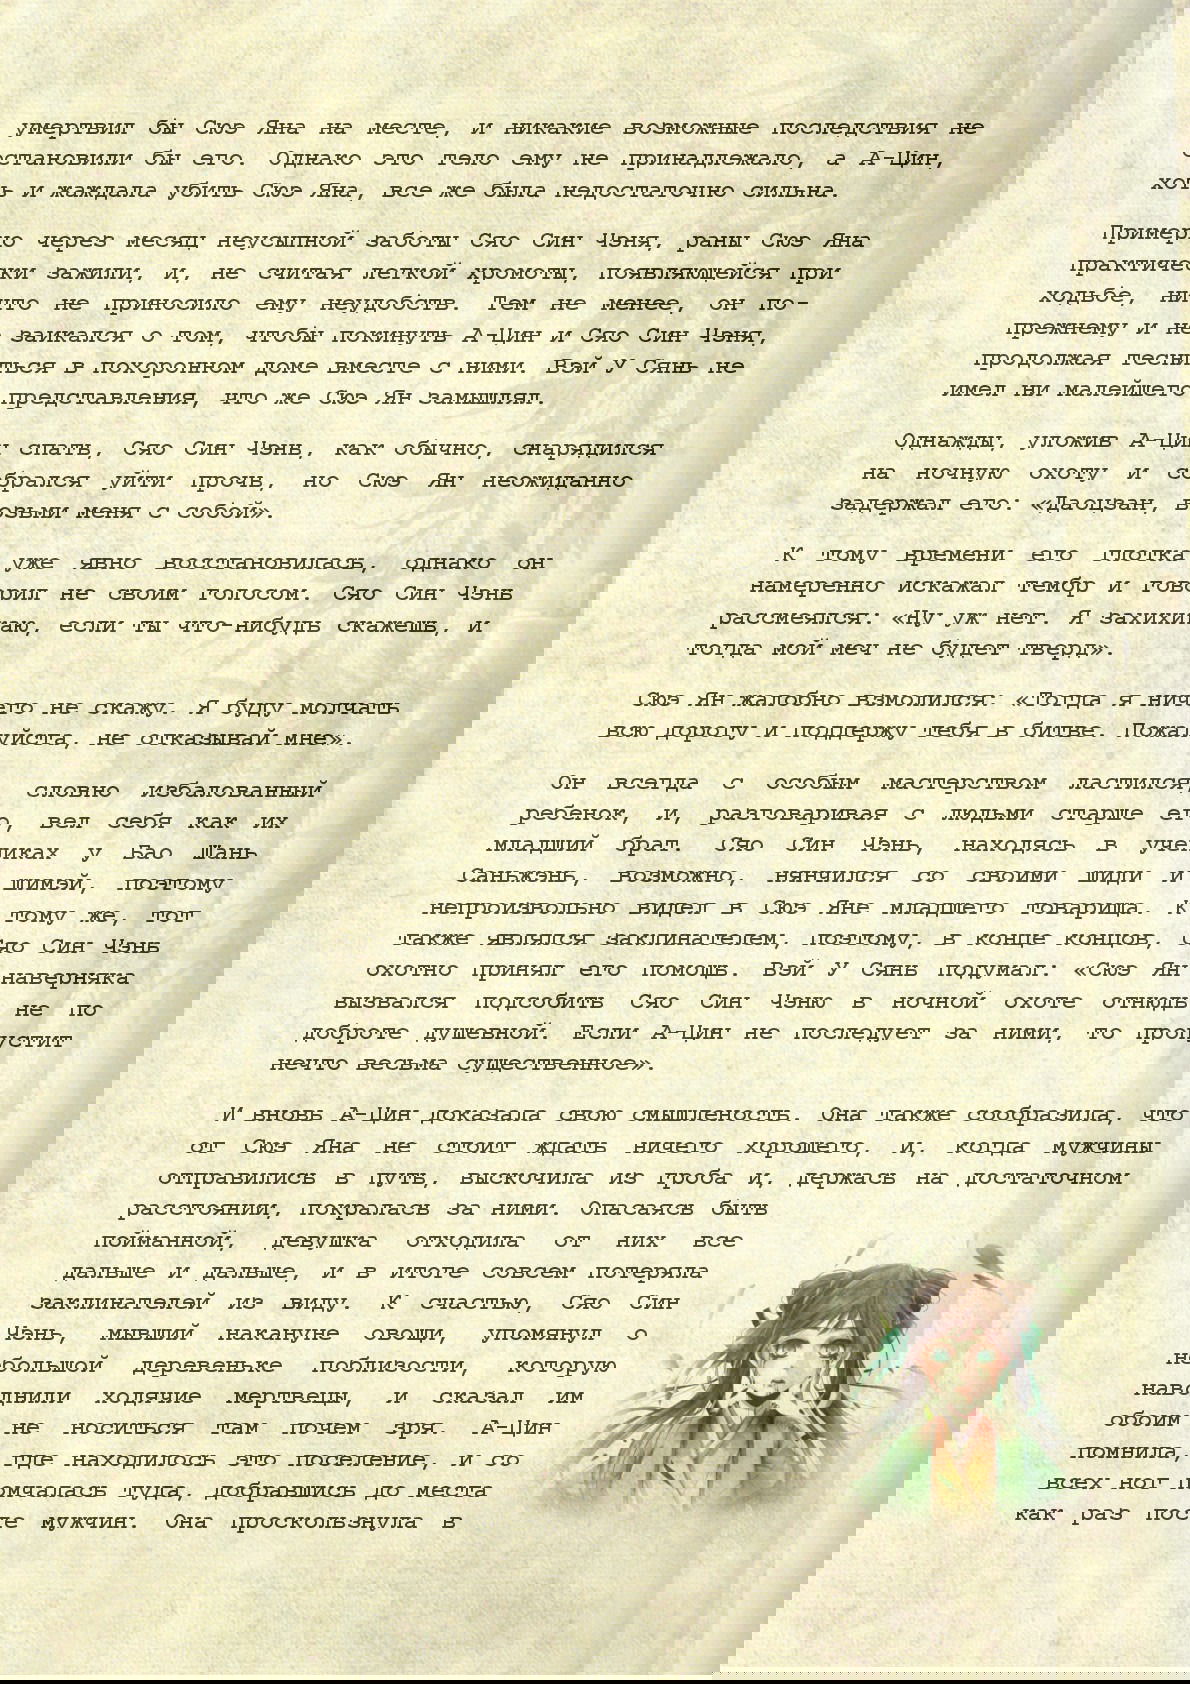 умертвил бы Сюэ Яна на месте, и никакие возможные последствия не
остановили бы его. Однако это тело ему не принадлежало, а А-Цин,
хоть и жаждала убить Сюэ Яна, все же была недостаточно сильна.
Примерно через месяц неусыпной заботы Сяо Син Чэня, раны Сюэ Яна
практически зажили, и, не считая легкой хромоты, появляющейся при
ходьбе, ничто не приносило ему неудобств. Тем не менее, он по-
прежнему и не заикался о том, чтобы покинуть А-Цин и Сяо Син Чэня,
продолжая тесниться в похоронном доме вместе с ними. Вэй У Сянь не
имел ни малейшего представления, что же Сюэ Ян замышлял.
Однажды, уложив А-Цин спать, Сяо Син Чэнь, как обычно, снарядился
на ночную охоту и собрался уйти прочь, но Сюэ Ян неожиданно
задержал его: «Даоцзан, возьми меня с собой».
К тому времени его глотка уже явно восстановилась, однако он
намеренно искажал тембр и говорил не своим голосом. Сяо Син Чэнь
рассмеялся: «Ну уж нет. Я захихикаю, если ты что-нибудь скажешь, и
тогда мой меч не будет тверд».
Сюэ Ян жалобно взмолился: «Тогда я ничего не скажу. Я буду молчать
всю дорогу и поддержу тебя в битве. Пожалуйста, не отказывай мне».
Он всегда с особым мастерством ластился, словно избалованный
ребенок, и, разговаривая с людьми старше его, вел себя как их
младший брат. Сяо Син Чэнь, находясь в учениках у Бао Шань
Саньжэнь, возможно, нянчился со своими шиди и шимэй, поэтому
непроизвольно видел в Сюэ Яне младшего товарища. К тому же, тот
также являлся заклинателем, поэтому, в конце концов, Сяо Син Чэнь
охотно принял его помощь. Вэй У Сянь подумал: «Сюэ Ян наверняка
вызвался подсобить Сяо Син Чэню в ночной охоте отнюдь не по
доброте душевной. Если А-Цин не последует за ними, то пропустит
нечто весьма существенное».
И вновь А-Цин доказала свою смышленость. Она также сообразила, что
от Сюэ Яна не стоит ждать ничего хорошего, и, когда мужчины
отправились в путь, выскочила из гроба и, держась на достаточном
расстоянии, покралась за ними. Опасаясь быть
пойманной, девушка отходила от них все
дальше и дальше, и в итоге совсем потеряла
заклинателей из виду. К счастью, Сяо Син
Чэнь, мывший накануне овощи, упомянул о
небольшой деревеньке поблизости, которую
наводнили ходячие мертвецы, и сказал им
обоим не носиться там почем зря. А-Цин
помнила, где находилось это поселение, и со
всех ног помчалась туда, добравшись до места
как раз после мужчин. Она проскользнула в